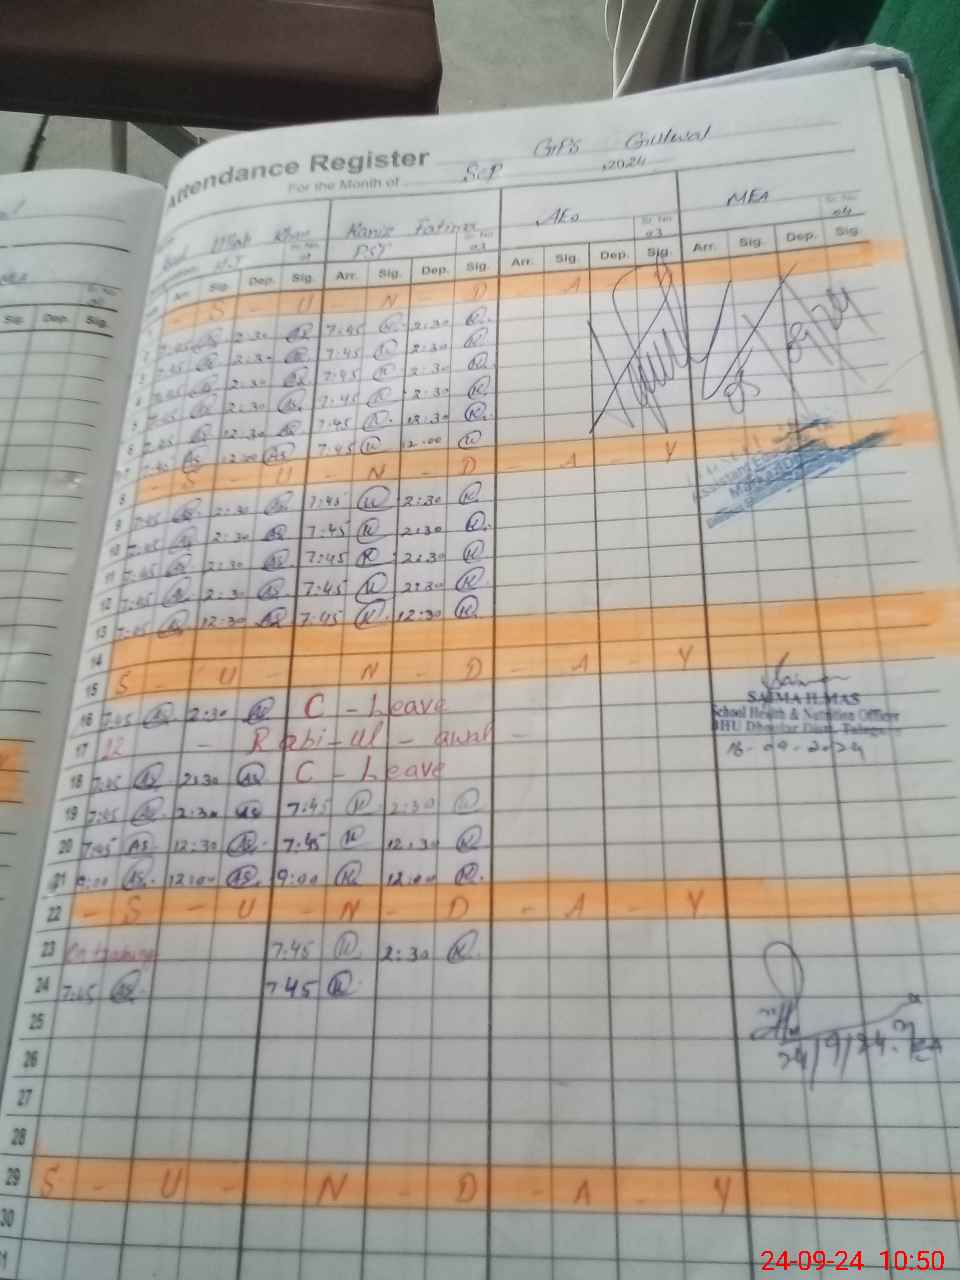 Attendance Register GPS Gulwal
For the Month of Sep , 2024
Ullah Khan Kaniz Fatima AEO MEA
H.T Sr. No. PST Sr. No. 03 Sr. No. 03 Sr. No. 04
Sig. Dep. Sig. Arr. Sig. Dep. Sig. Arr. Sig. Dep. Sig. Arr. Sig. Dep. Sig. Arr. Sig. Dep. Sig.
1 - S - U - N - D - A -
2 7:45 AS 2:30 AS 7:45 K 2:30 K
3 7:45 AS 2:30 AS 7:45 K 2:30 K
4 7:45 AS 2:30 AS 7:45 K 2:30 K
5 7:45 AS 2:30 AS 7:45 K 2:30 K
6 7:45 AS 12:30 AS 7:45 K 12:30 K
7 7:45 AS 12:00 AS 7:45 K 12:00 K
8 - S - U - N - D - A - Y
9 7:45 AS 2:30 AS 7:45 K 2:30 K
10 7:45 AS 2:30 AS 7:45 K 2:30 K
11 7:45 AS 2:30 AS 7:45 K 2:30 K
12 7:45 AS 2:30 AS 7:45 K 2:30 K
13 7:45 AS 12:30 AS 7:45 K 12:30 K
14
15 S - U - N - D - A - Y
16 7:45 AS 2:30 AS C - Leave
SAIMA ILMAS
School Health & Nutrition Officer
17 12 - Rabi-ul-awal -
18-09-2024
18 7:45 AS 2:30 AS C - Leave
19 7:45 AS 2:30 AS 7:45 K 2:30 K
20 7:45 AS 12:30 AS 7:45 K 12:30 K
21 9:00 AS 12:00 AS 9:00 K 12:00 K
22 - S - U - N - D - A - Y
23 On training 7:45 K 2:30 K
24 7:45 AS 7:45 K
25
24/9/24 MEA
26
27
28
29 S - U - N - D - A - Y
30
24-09-24 10:50